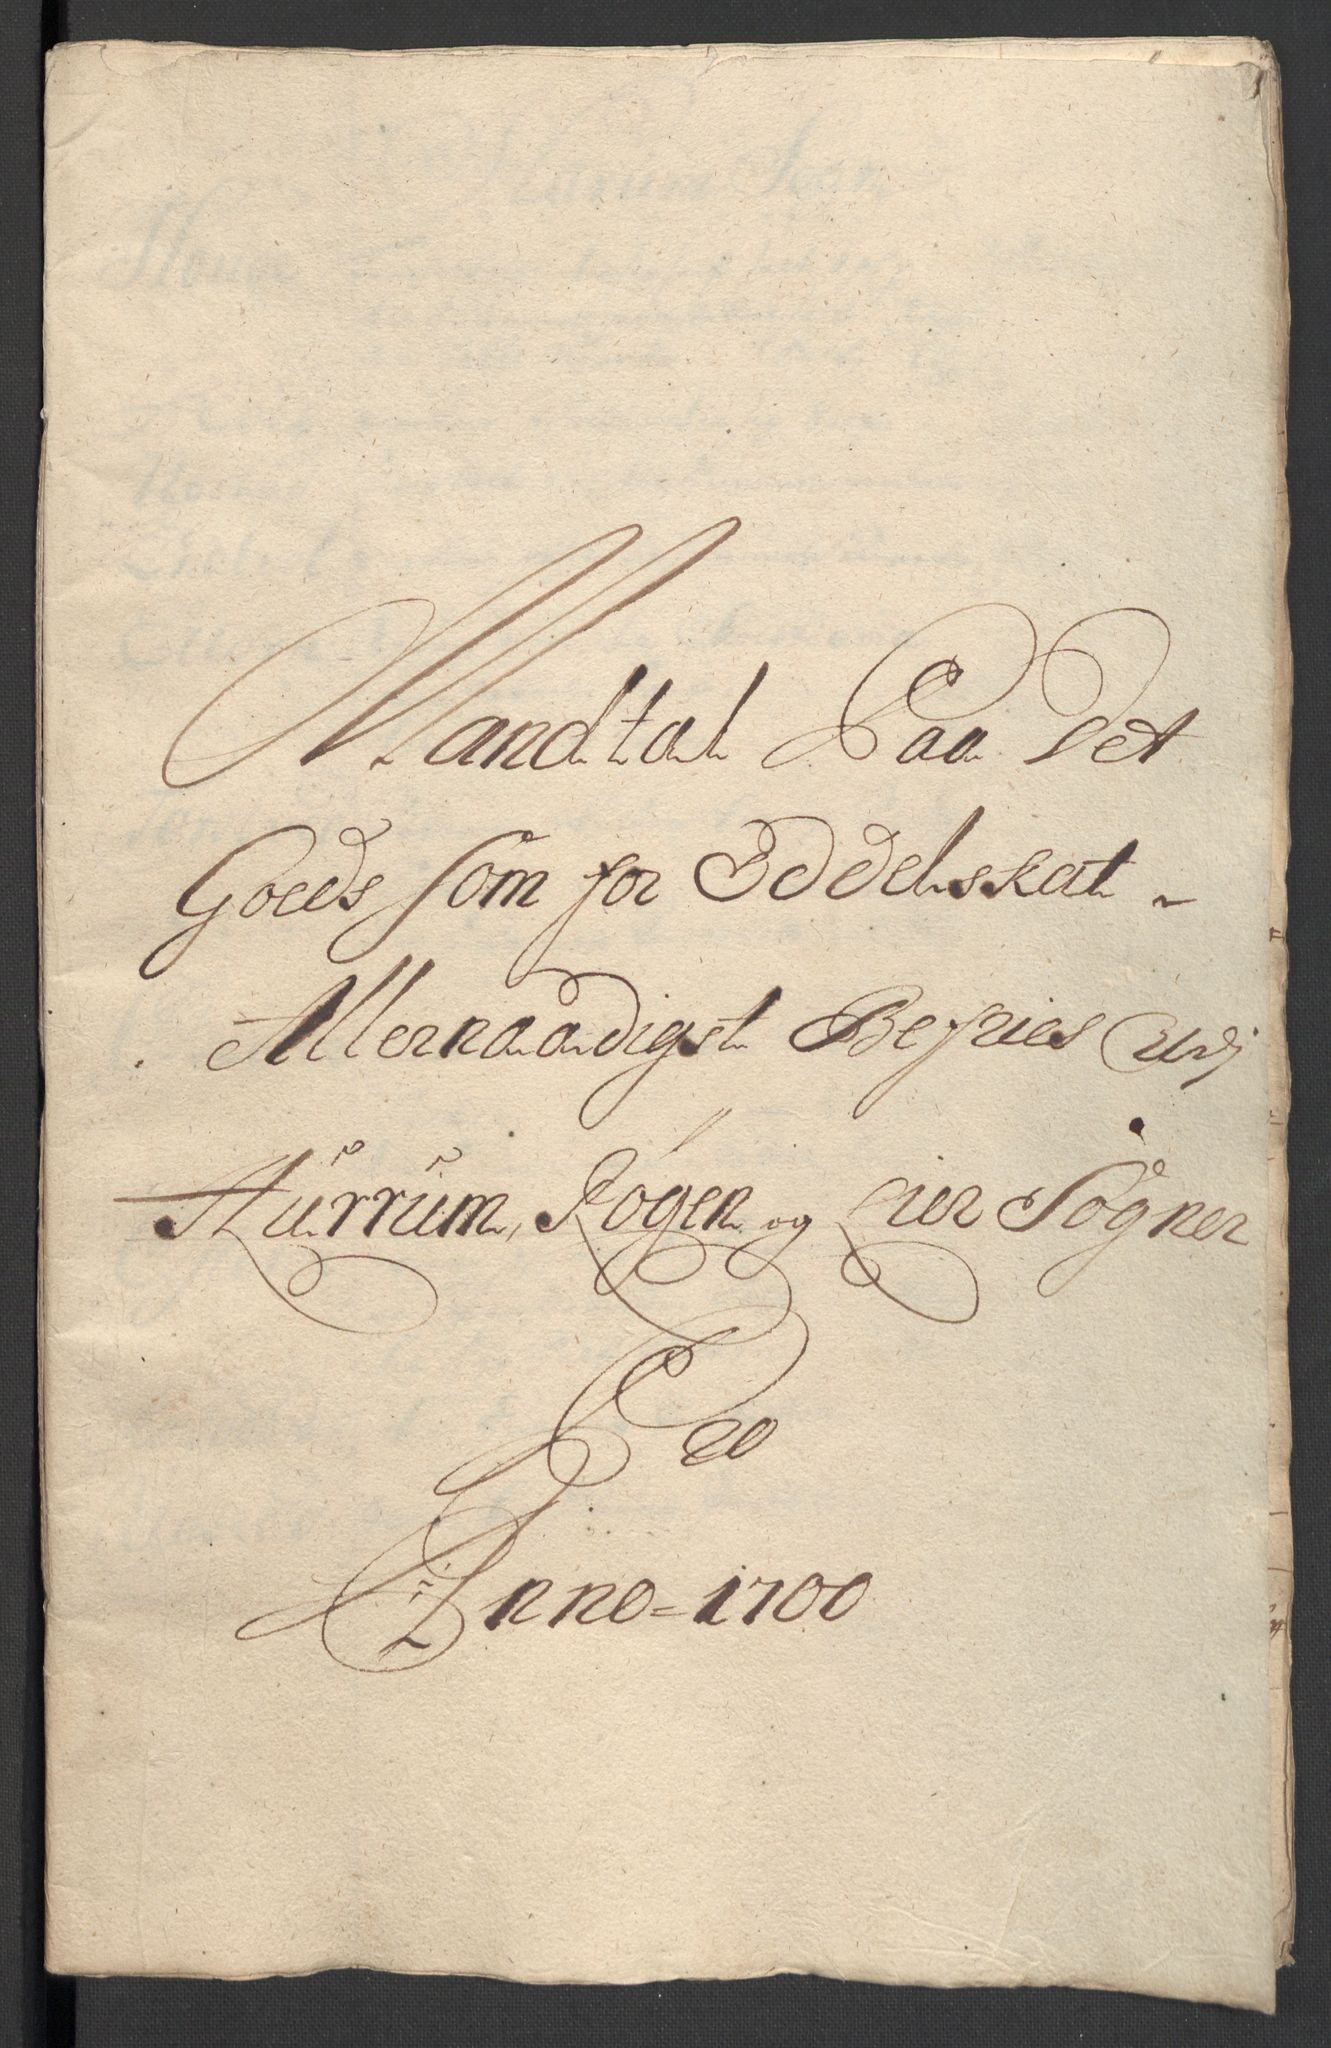 Mandtal Paa Det
Goeds som for Oddelskat
Allernaadigst Befries Udj
Hürrüm, Rögen og Lier Sogner
Pro
Anno = 1700